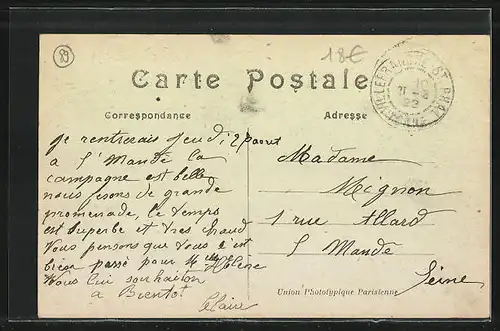 89
18€
Carte Postale
Correspondance
Adresse
VILLEFRANCHE ST
21 -8
22
je rentrerais jeudi 2 paout
a S' Mandé la
campagne est belle
nous fesons de grande
promenade, le temps
est superbe et tres chaud
Vous pensons que tous s'est
bien passé pour Melle Hélène
Vous lui souhaiton
a Bientot
Claire
Madame
Mignon
1 rue Allard
S Mande
Seine
Union Phototypique Parisienne